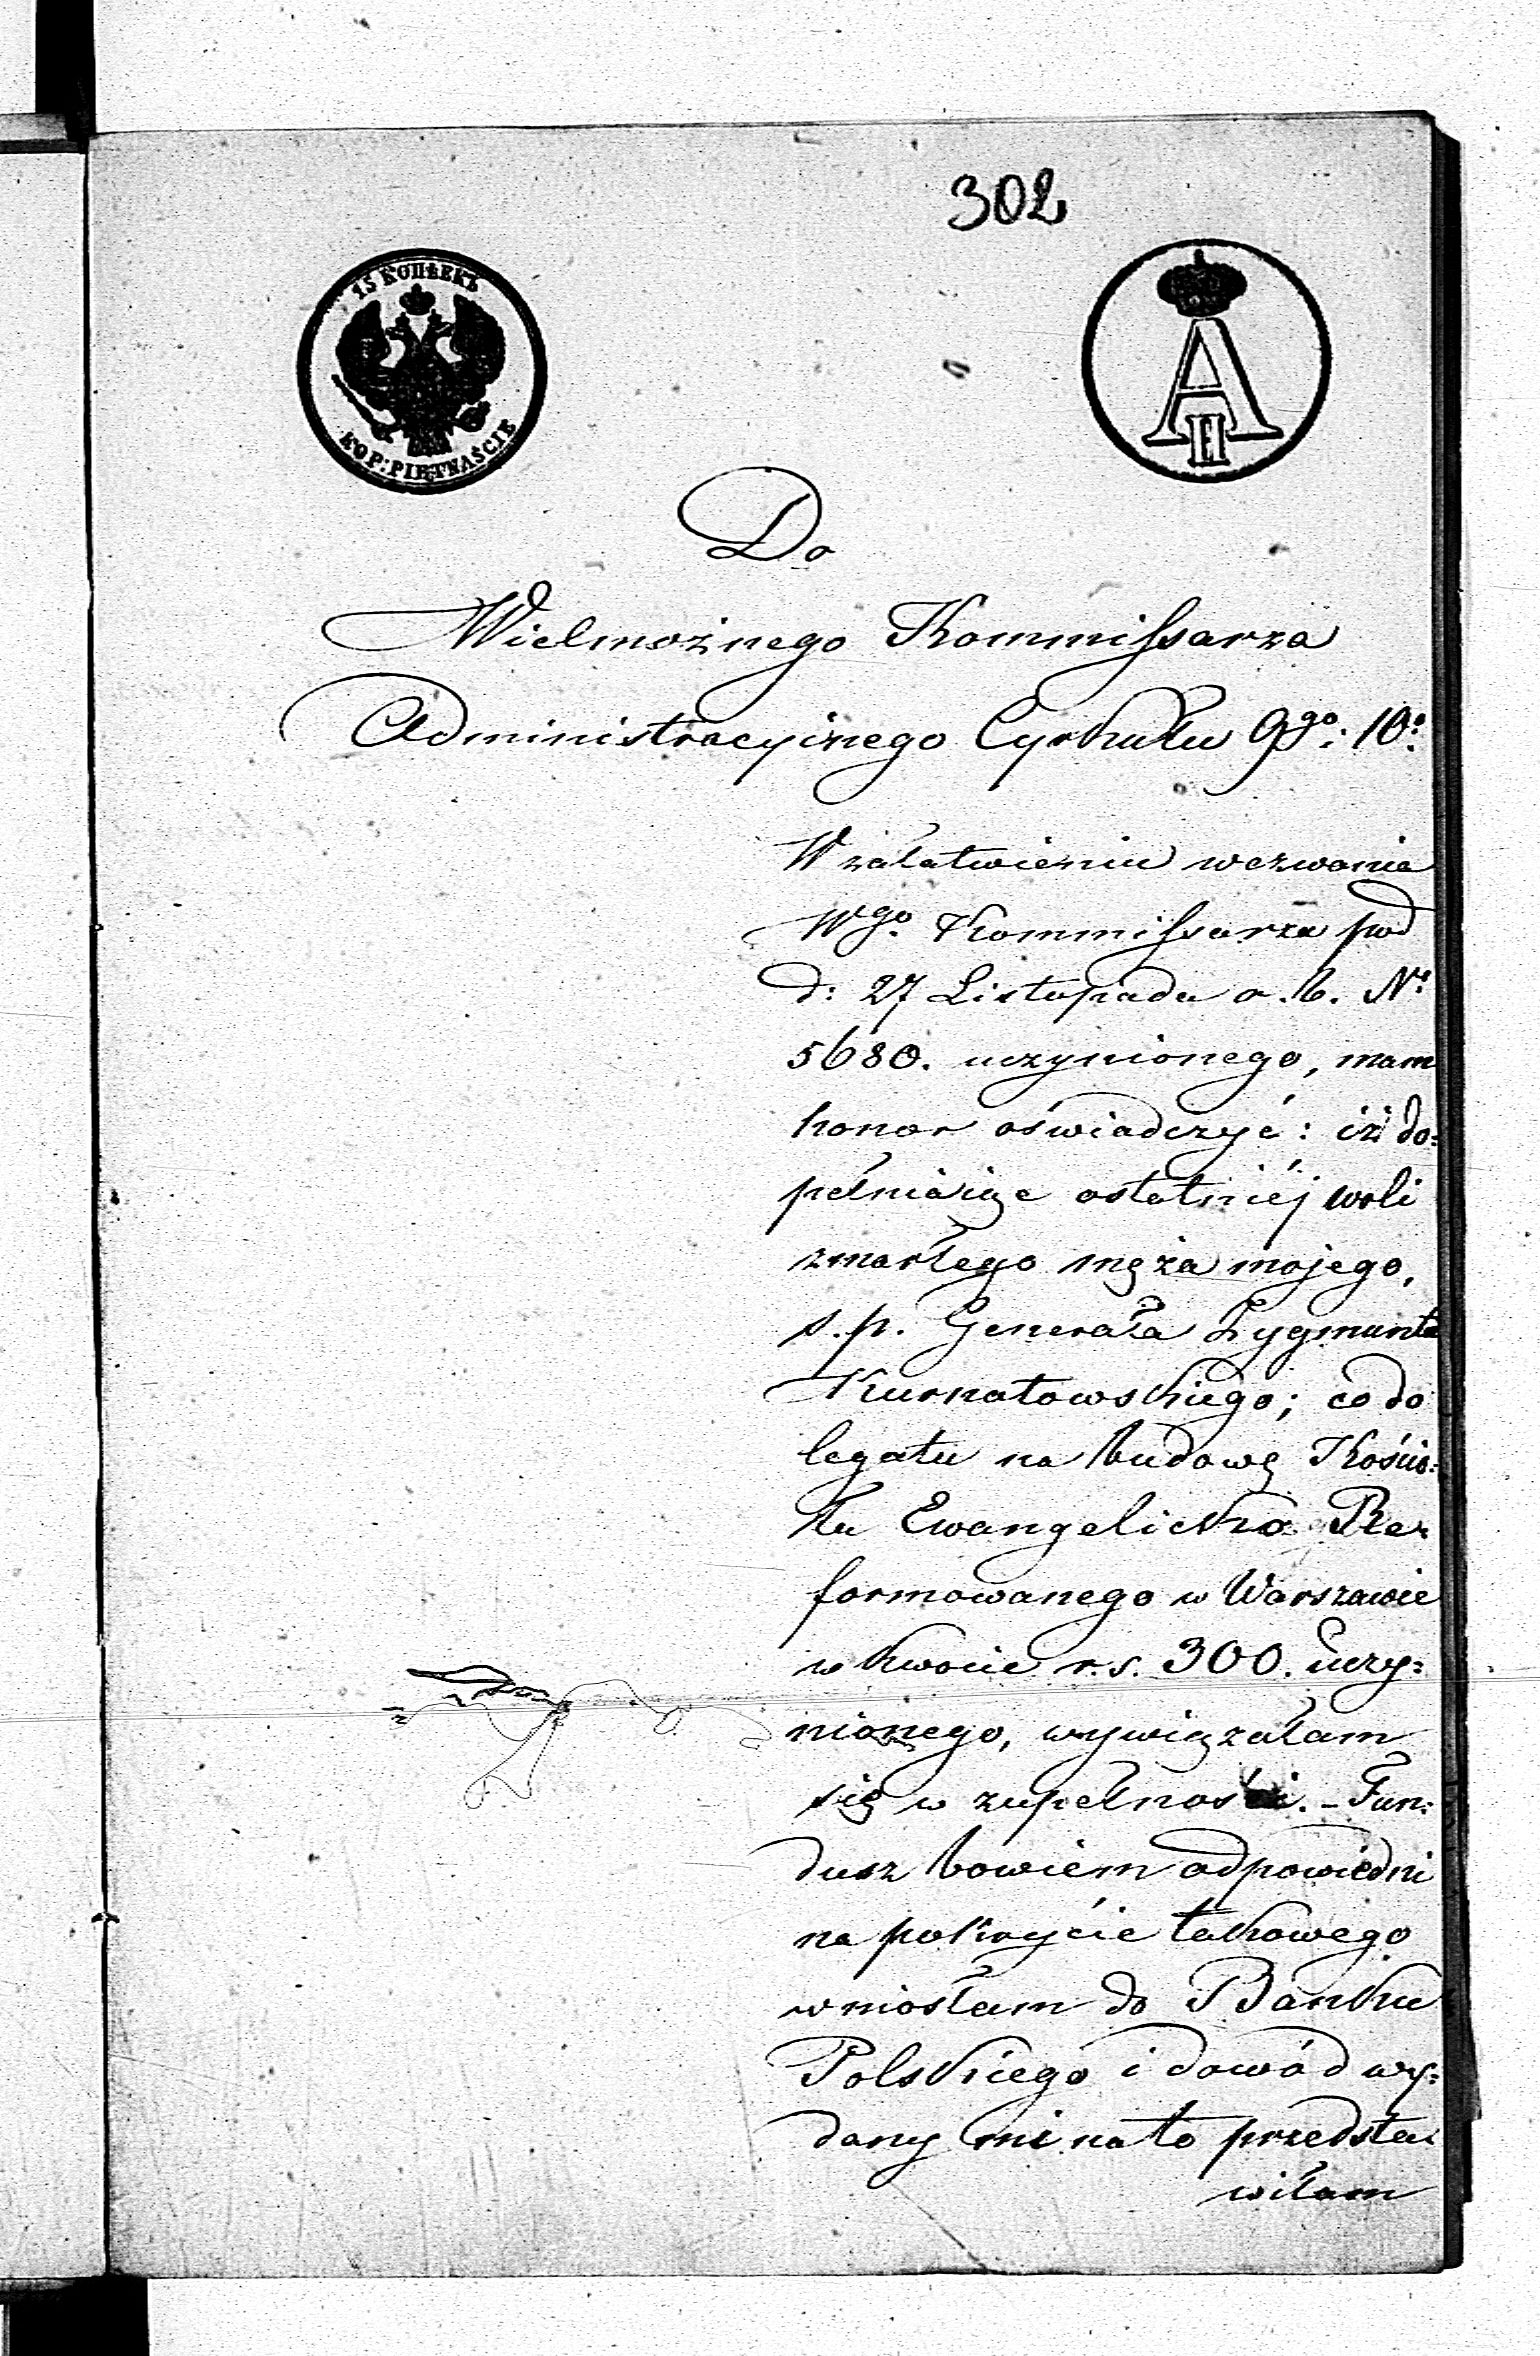 302
15 КОПѢЕКЪ
KOP: PIĘTNAŚCIE
A
II
Do
Wielmożnego Kommissarza
Administracyjnego Cyrkułu 9go: 10o:
W załatwieniu wezwania
Wgo. Kommissarza pod
d: 27 Listopada a. b. No
5680. uczynionego, mam
honor oświadczyć: iż do=
pełniając ostatniéj woli
zmarłego męża mojego,
s. p. Generała Zygmunta
Kurnatowskiego; co do
legatu na budowę Kościo=
ła Ewangelicko Re=
formowanego w Warszawie
w kwocie r. s. 300. uczy=
nionego, wywiązałam
się w zupełności. - Fun=
dusz bowiem odpowiedni
na pokrycie takowego
wniosłam do Banku
Polskiego i dowód wy=
dany mi na to przedsta=
wiłam